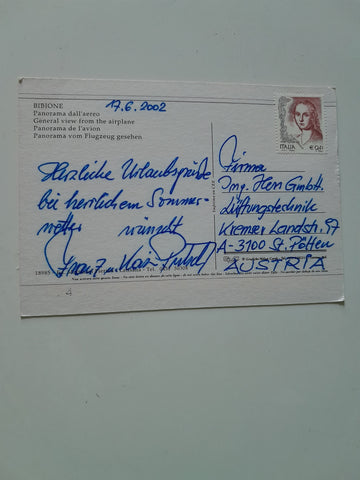 BIBIONE
Panorama dall'aereo
General view from the airplane
Panorama de l'avion
Panorama vom Flugzeug gesehen
17.6.2002
Herzliche Urlaubsgrüße
bei herrlichem Sommer-
wetter wünscht
Franz
ITALIA € 0,41
Firma
Ing. Herr GmbH.
Lüftungstechnik
Kremser Landstr. 97
A-3100 St. Pölten
AUSTRIA